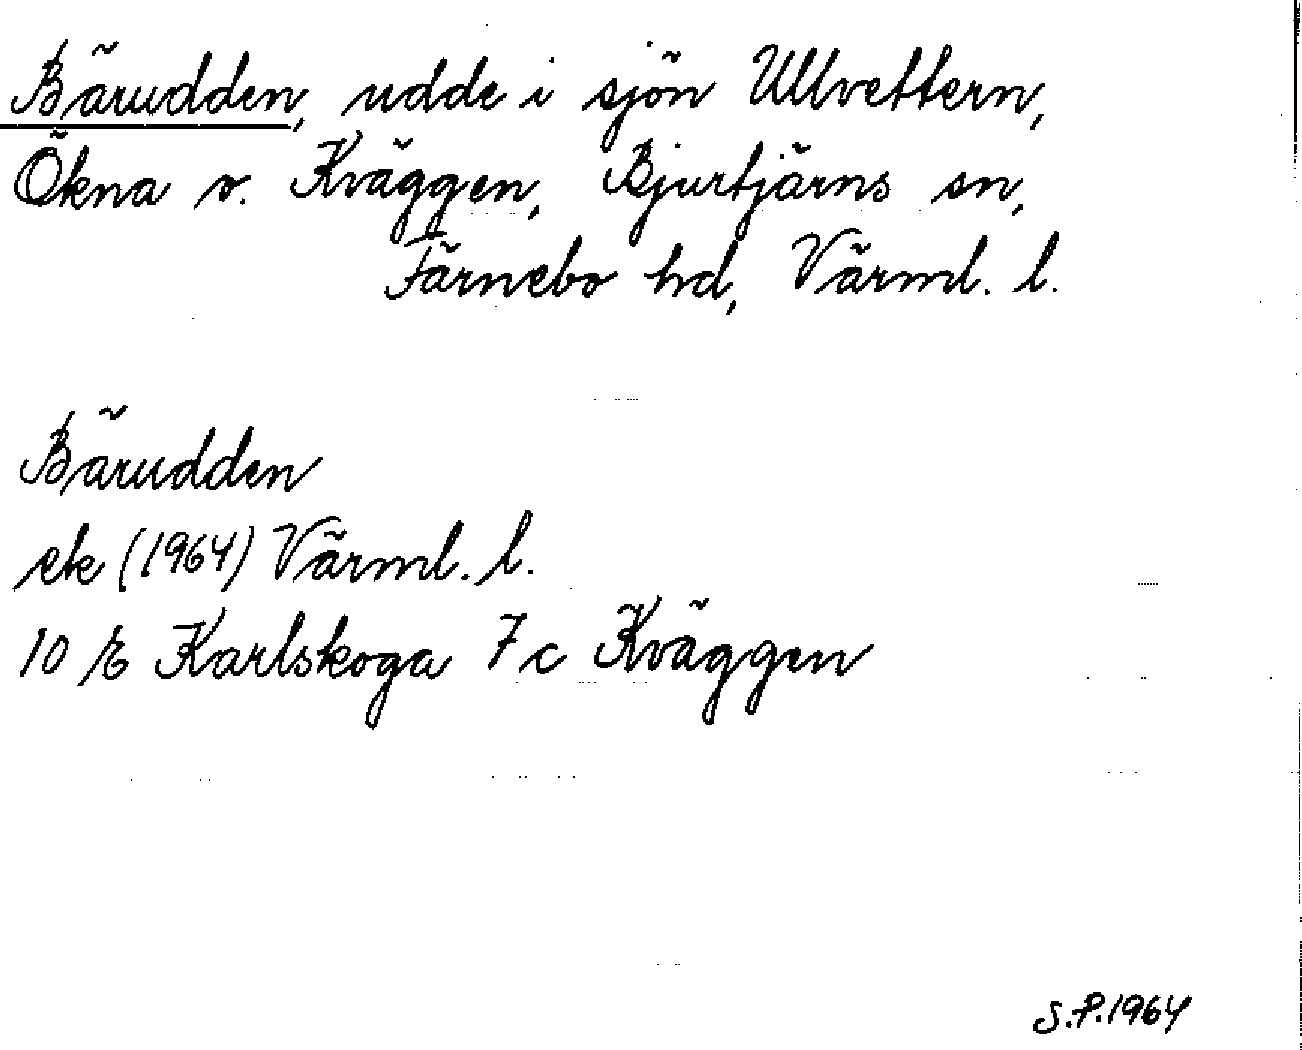 Bärudden, udde i sjön Ullvettern,
Ökna v. Kväggen, Bjurtjärns sn,
Färnebo hd, Värml. l.
Bärudden
ek (1964) Värml. l.
10 E Karlskoga 7 c Kväggen
S.P. 1964